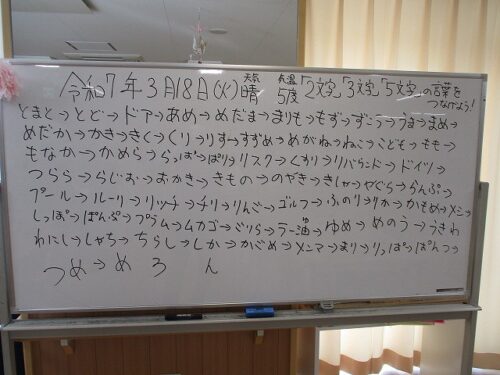 令和7年3月18日(火) 天気 晴 気温 5度 「2文字」「3文字」「5文字」の言葉をつなげよう!
とまと→とど→ドア→あめ→めだま→まりも→もず→ずこう→うま→まめ→
めだか→かき→きく→くり→りす→すずめ→めがね→ねこ→こども→もも→
もなか→かめら→らっぱ→ぱり→リスク→くすり→リバウンド→ドイツ→
つらら→らじお→おかき→きもの→のやき→きしゃ→やぐら→らんぷ→
プール→ルーリ→リッチ→チリ→りんご→ゴルフ→ふのり→りか→かもめ→メシ→
しっぽ→ぽんぷ→プラム→ムカゴ→ごりら→ラー油→ゆめ→めのう→うきわ
わにし→しゃち→ちらし→しか→かごめ→メンマ→まり→りっぱ→ぱんつ→
つめ→めろん